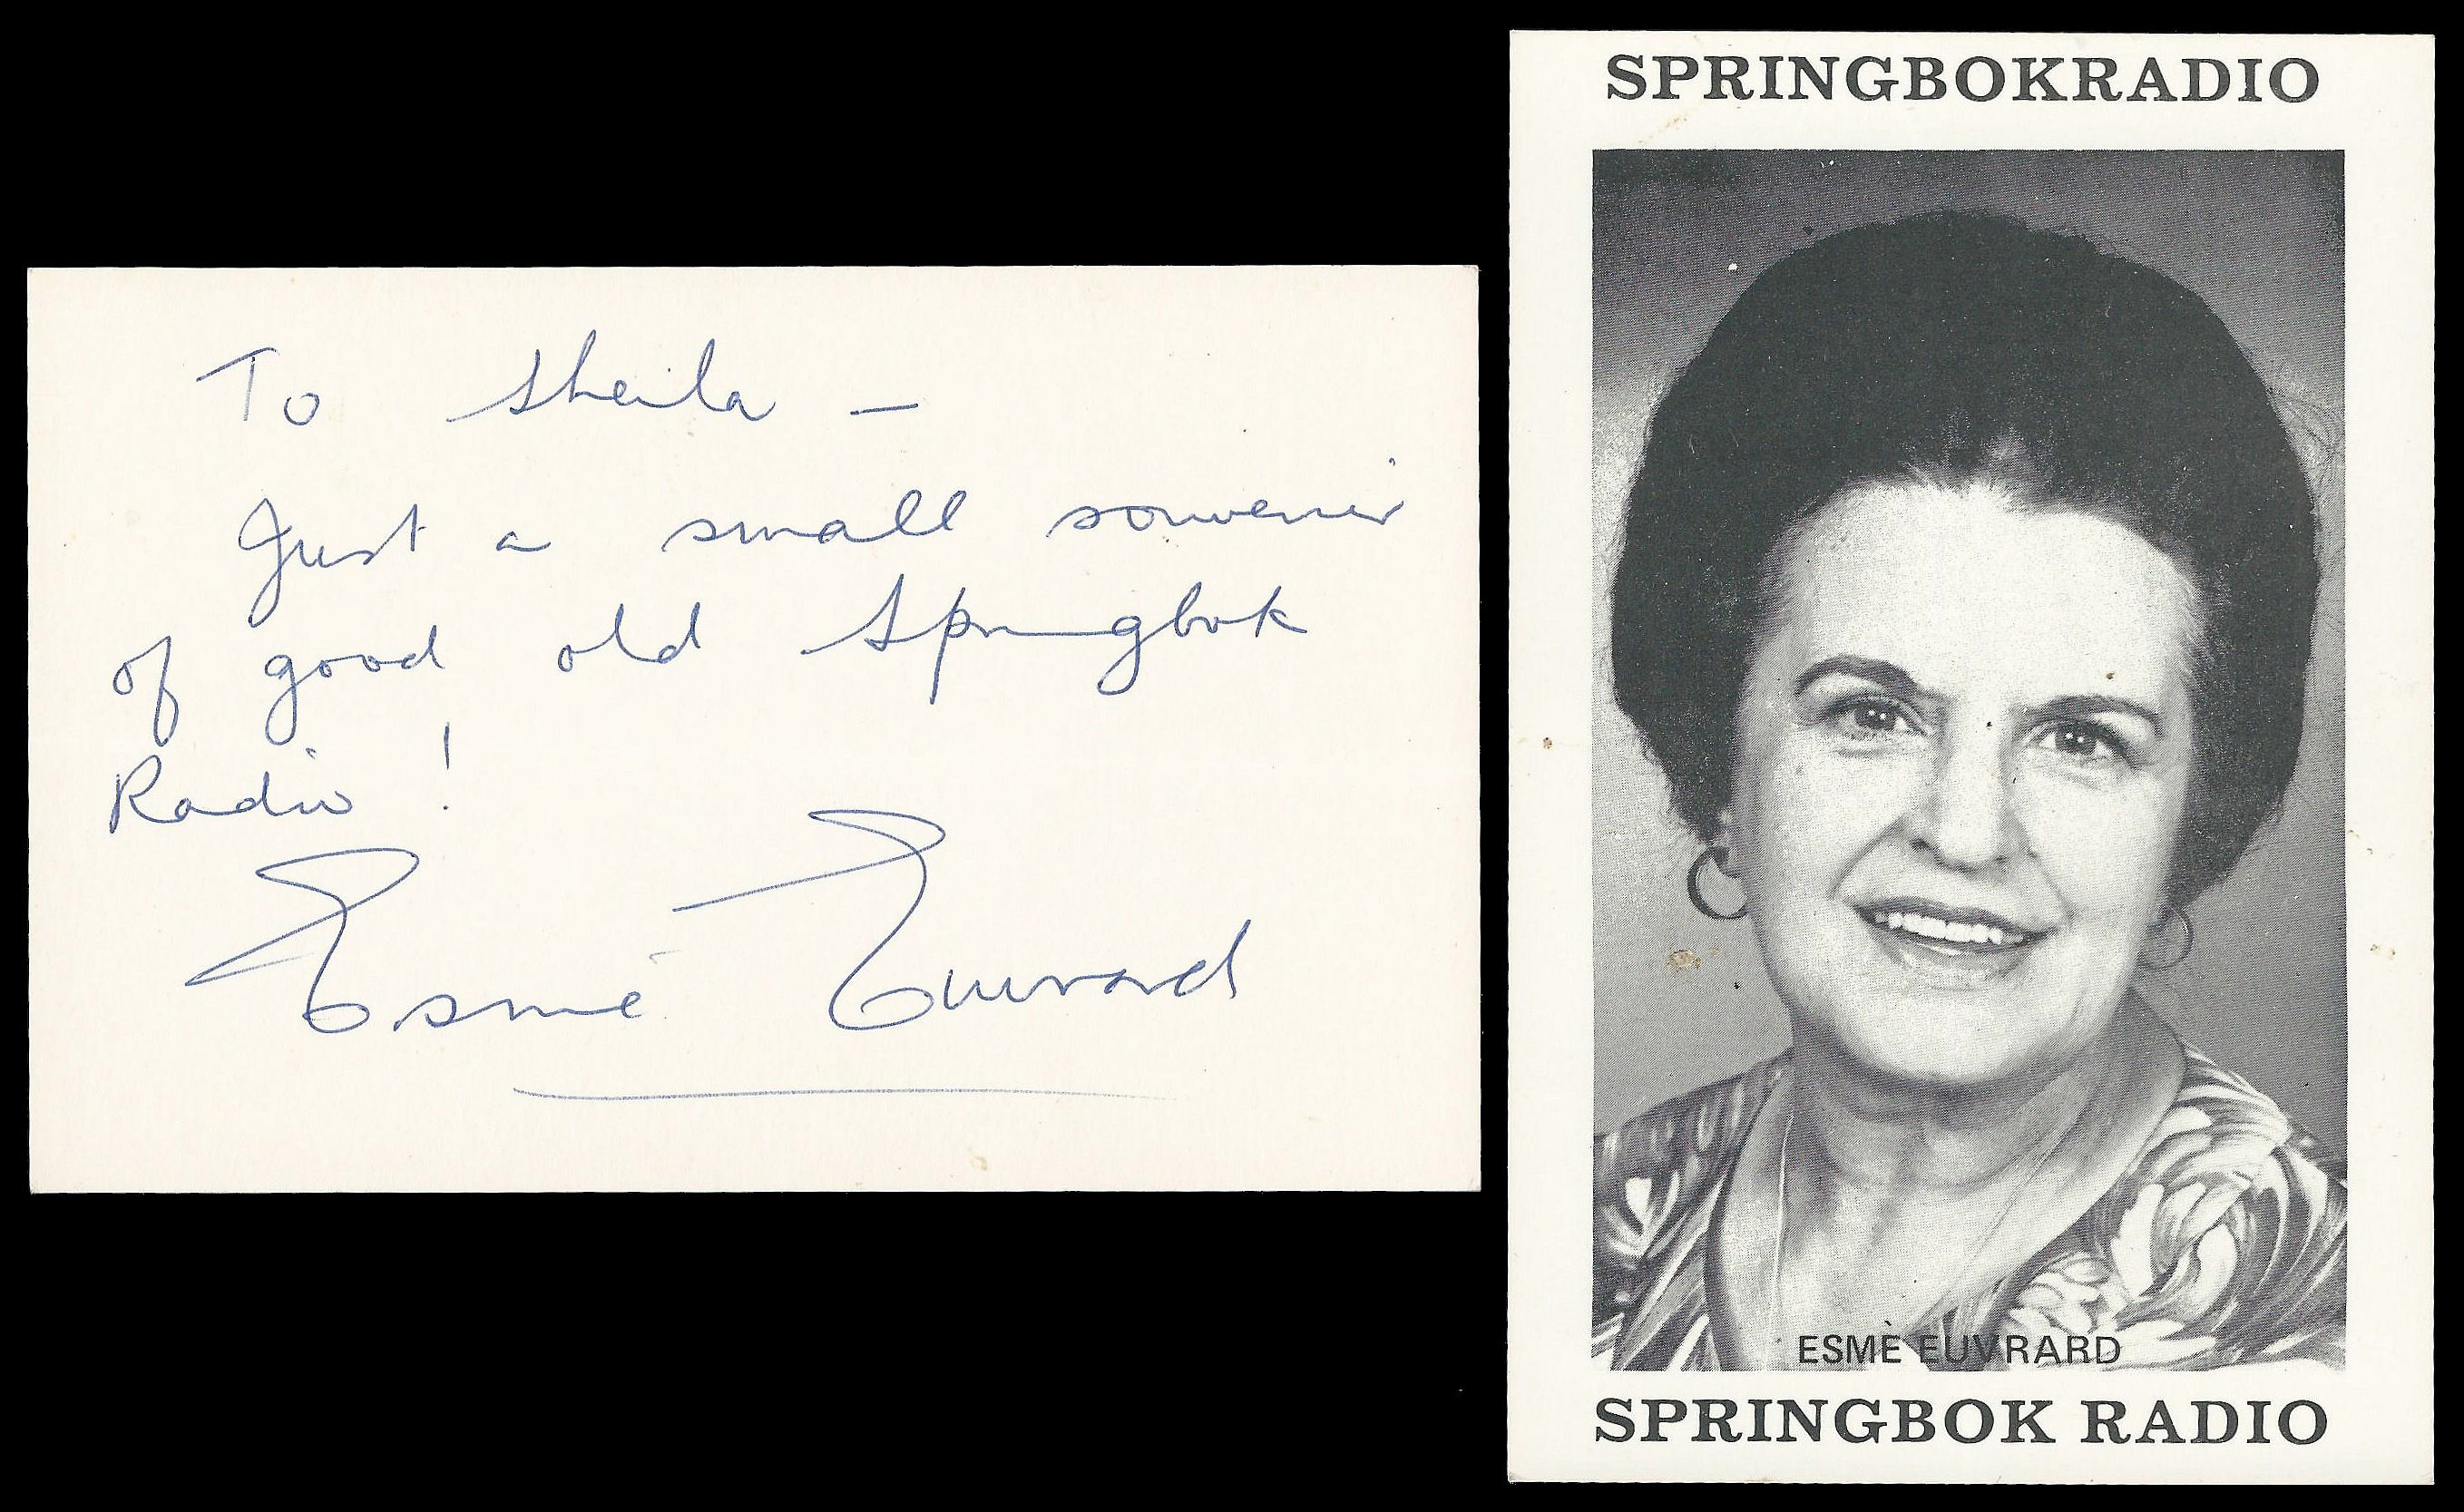 To Sheila —
Just a small souvenir
of good old Springbok
Radio !
Esmé Euvrard
SPRINGBOKRADIO
ESMÈ EUVRARD
SPRINGBOK RADIO